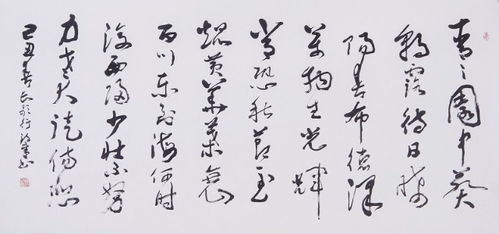 青々園中葵
朝露待日晞
陽春布德澤
萬物生光輝
常恐秋節至
焜黄華葉衰
百川东到海何时
復西歸少壮不努
力老大徒傷悲
己丑春长歌行